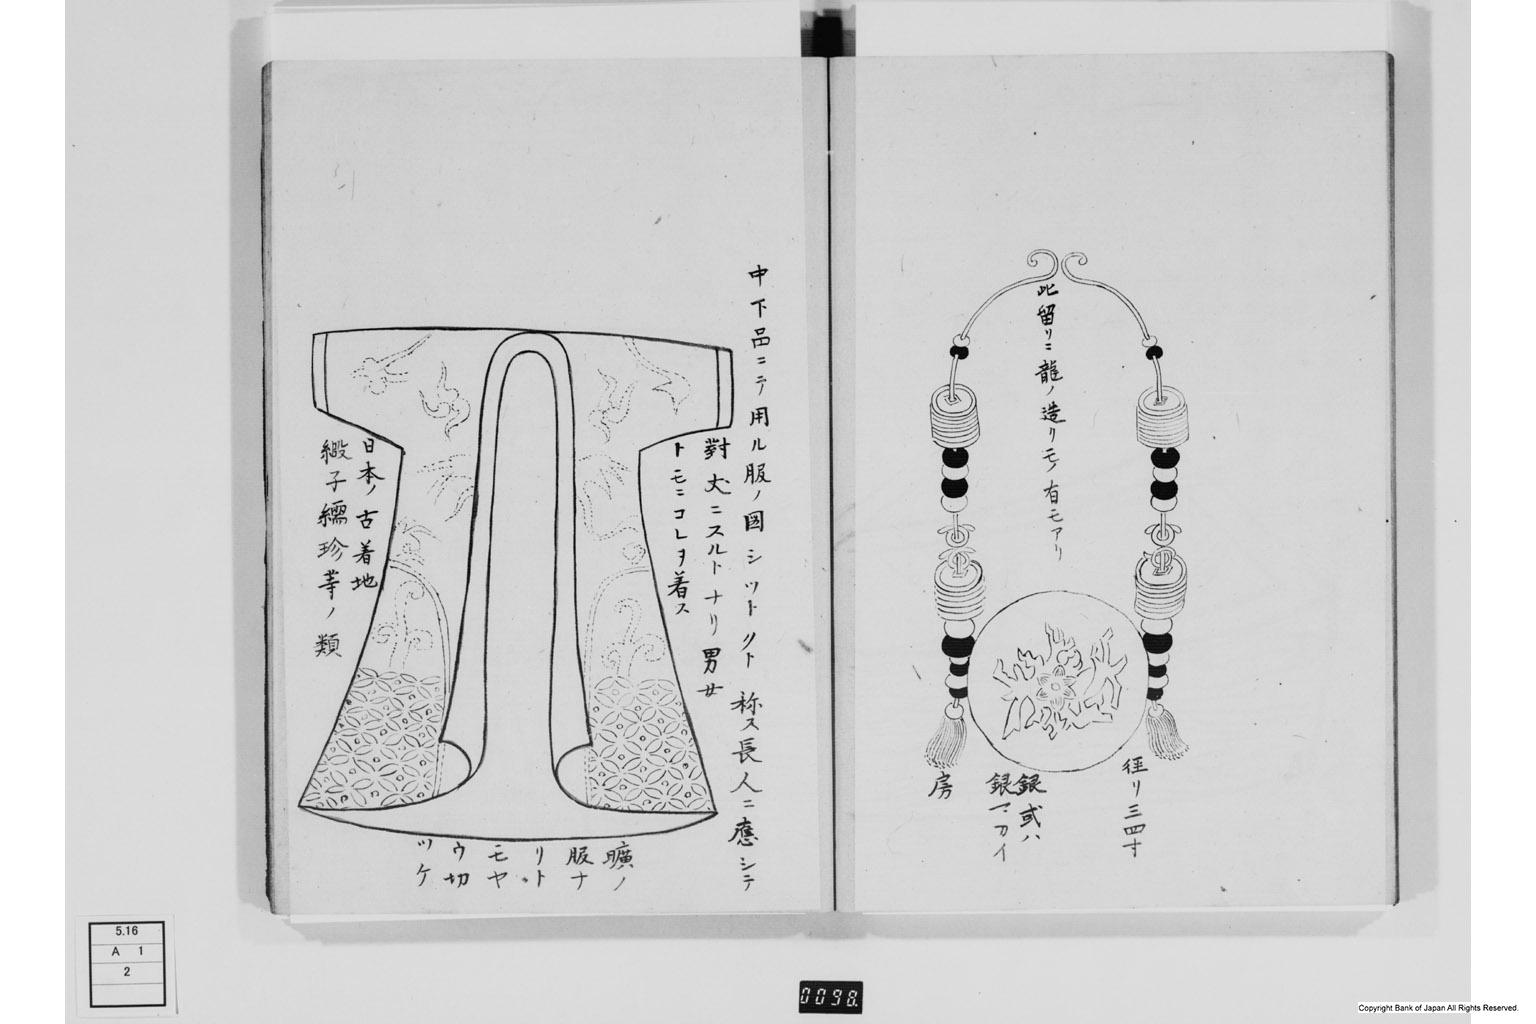 此留リニ龍ノ造リモノ有モアリ
径リ三四寸
銀或ハ
銀マカイ
房
中下品ニテ用ル服ノ図シツトリト称ス長人ニ應シテ
對丈ニスルトナリ男女
トモニコレヲ着ス
日本ノ古着地
緞子繻珍䒭ノ類
曠ノ
服ナ
リト
モヤ
ウ切
ツケ
5.16
A 1
2
0098
Copyright Bank of Japan All Rights Reserved.